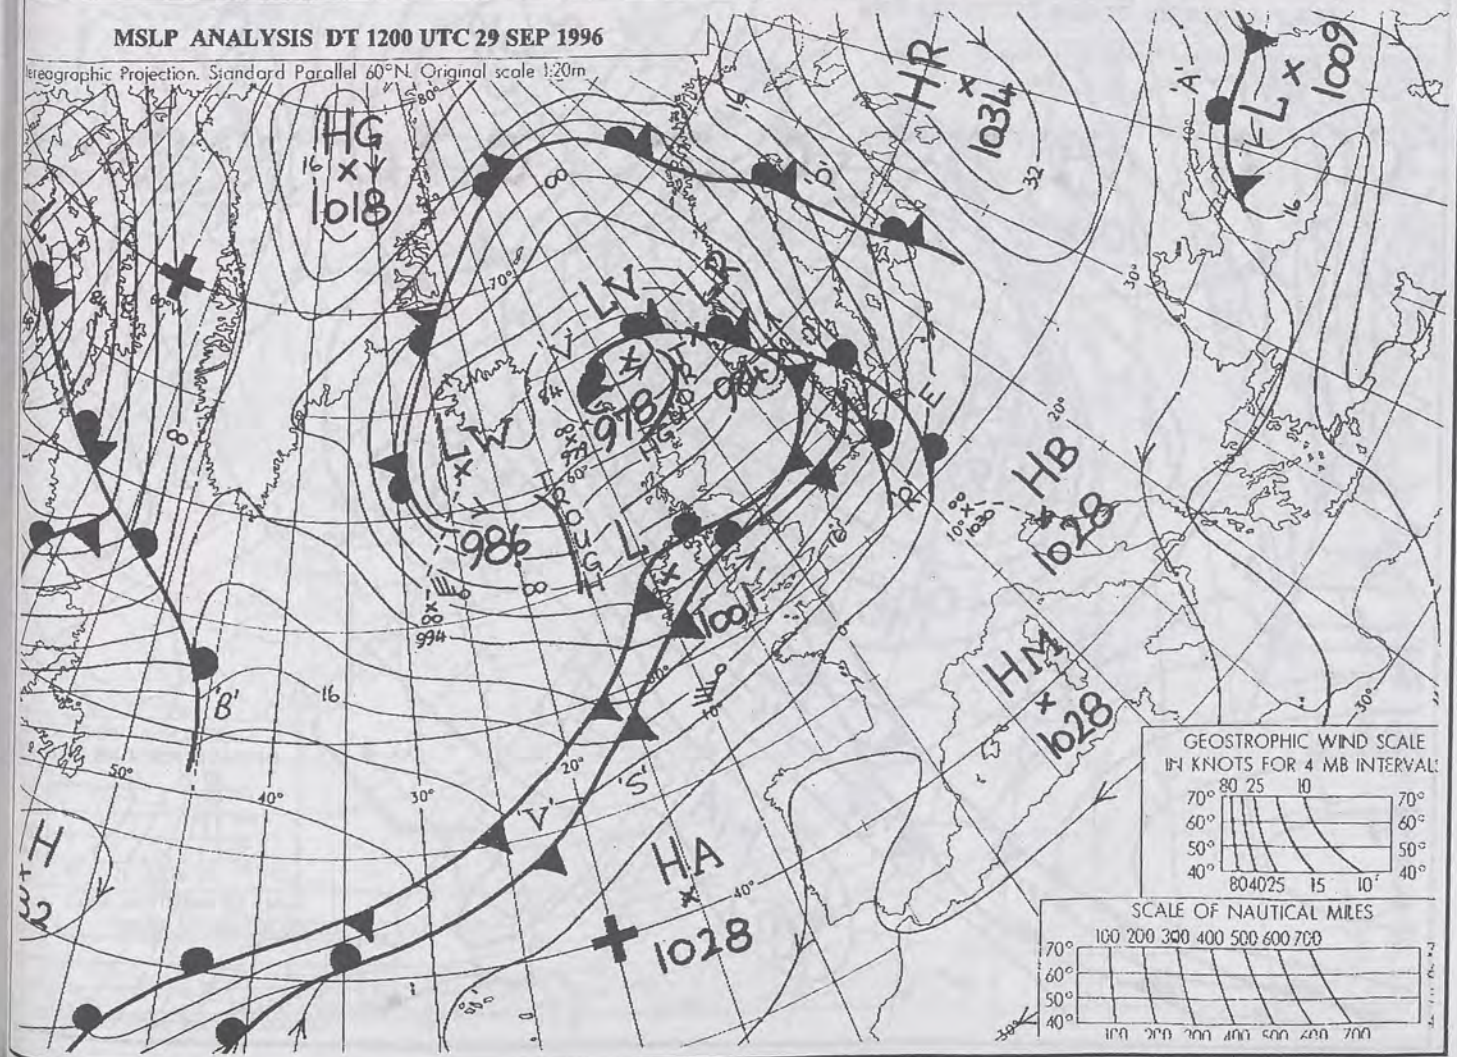 MSLP ANALYSIS DT 1200 UTC 29 SEP 1996
ereographic Projection. Standard Parallel 60°N. Original scale 1:20m
80°
HG
16
1018
16
HR
1034
32
'A'
L
1009
16
30°
'P'
00
70°
LV
LR
V
84
978
984
NORTH
E
R
LW
986
00
979
60°
TROUGH
00
994
00
L
1001
8
84
'B'
16
HB
1028
20°
10°
1030
HM
1028
30°
0
10°
'S'
'V'
50°
40°
30°
20°
H
HA
1028
40°
30°
GEOSTROPHIC WIND SCALE
IN KNOTS FOR 4 MB INTERVALS
80 25 10
70° 70°
60° 60°
50° 50°
40° 40°
80 40 25 15 10
SCALE OF NAUTICAL MILES
100 200 300 400 500 600 700
70°
60°
50°
40°
100 200 300 400 500 600 700